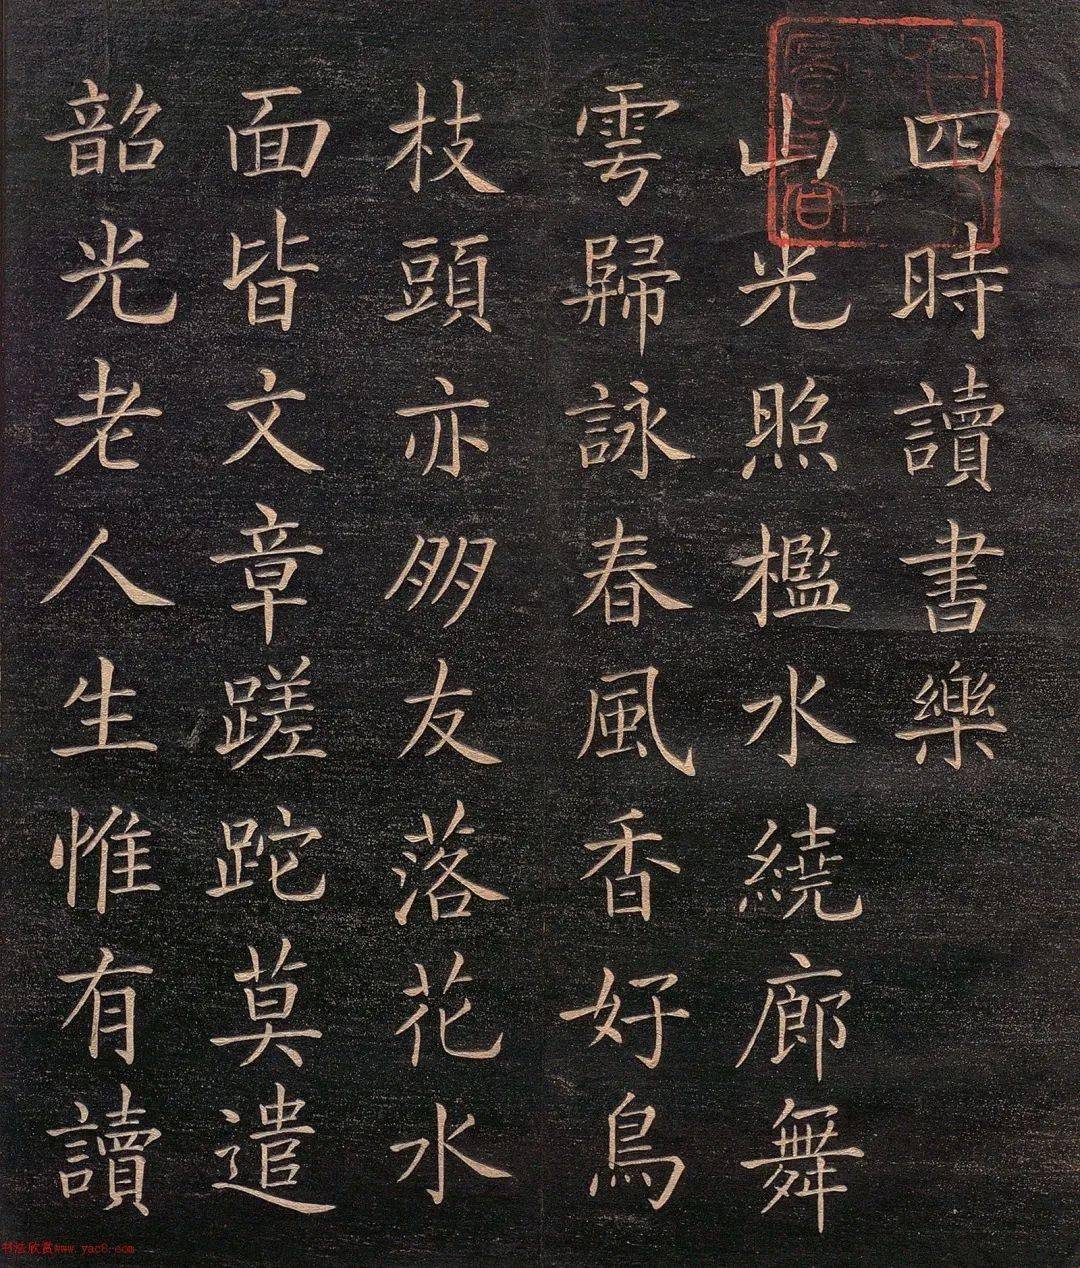 四時讀書樂
山光照檻水繞廊舞
雩歸詠春風香好鳥
枝頭亦朋友落花水
面皆文章蹉跎莫遣
韶光老人生惟有讀
书法欣赏www.yac8.com